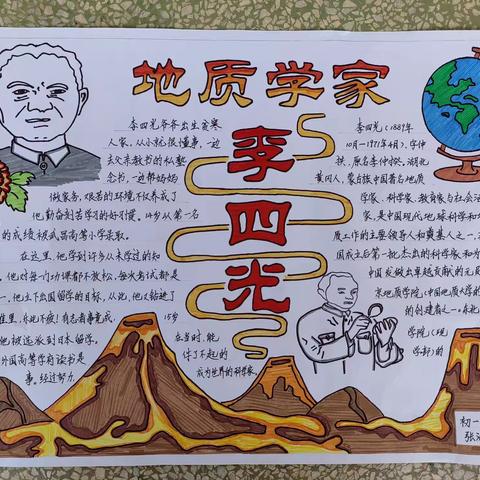 地质学家
李四光
李四光爷爷出生贫寒
人家，从小就很懂事，一边
去父亲教书的私塾
念书，一边帮妈妈
做家务，艰苦的环境不仅养成了
他勤奋刻苦学习的好习惯。14岁从第一名
的成绩被武昌高等小学录取。
在这里，他学到许多从未学过的知
，他对每门功课都不放松，每次考试都是
一，他立下出国留学的目标，从此，他又钻进了
里，永不疲！有志者事竟成，15岁
他被送派到日本留学。
外国高等学府读书是
事。经过努力，
在当时，能
件了不起的
成为世界的科学家。
李四光（1889年
10月-1971年4月），字仲
拱，原名李仲揆，湖北
黄冈人，蒙古族，中国著名地质
学家、科学家、教育家与社会活
家，是中国现代地球科学和地
质工作的主要领导人和奠基人之一，
国成立后第一批杰出的科学家和为
中国发展做出卓越贡献的元
京地质学院（中国地质大学的
的创建者之一。
学院（现
学部）的
初一
张